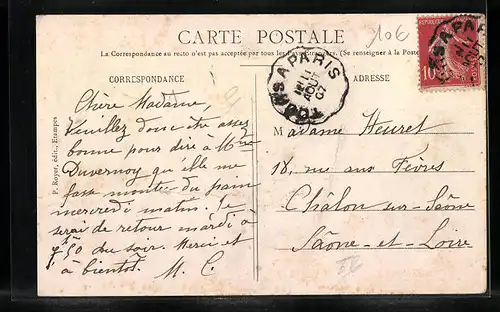 CARTE POSTALE
10€
La Correspondance au recto n'est pas acceptée par tous les Pays Étrangers. (Se renseigner à la Poste
CORRESPONDANCE
ADRESSE
TOURS A PARIS
11
AOUT
07
10
P. Royer, édit., Etampes
Chère Madame,
Veuillez donc être assez
bonne pour dire à Mme
Duvernoy qu'elle me
fasse monter du pain
mercredi matin. Je
serai de retour mardi à
du soir. Merci et
à bientôt. M. C.
Madame Heuret
18, rue aux Fèvres
Châlon-sur-Saône
Saône-et-Loire